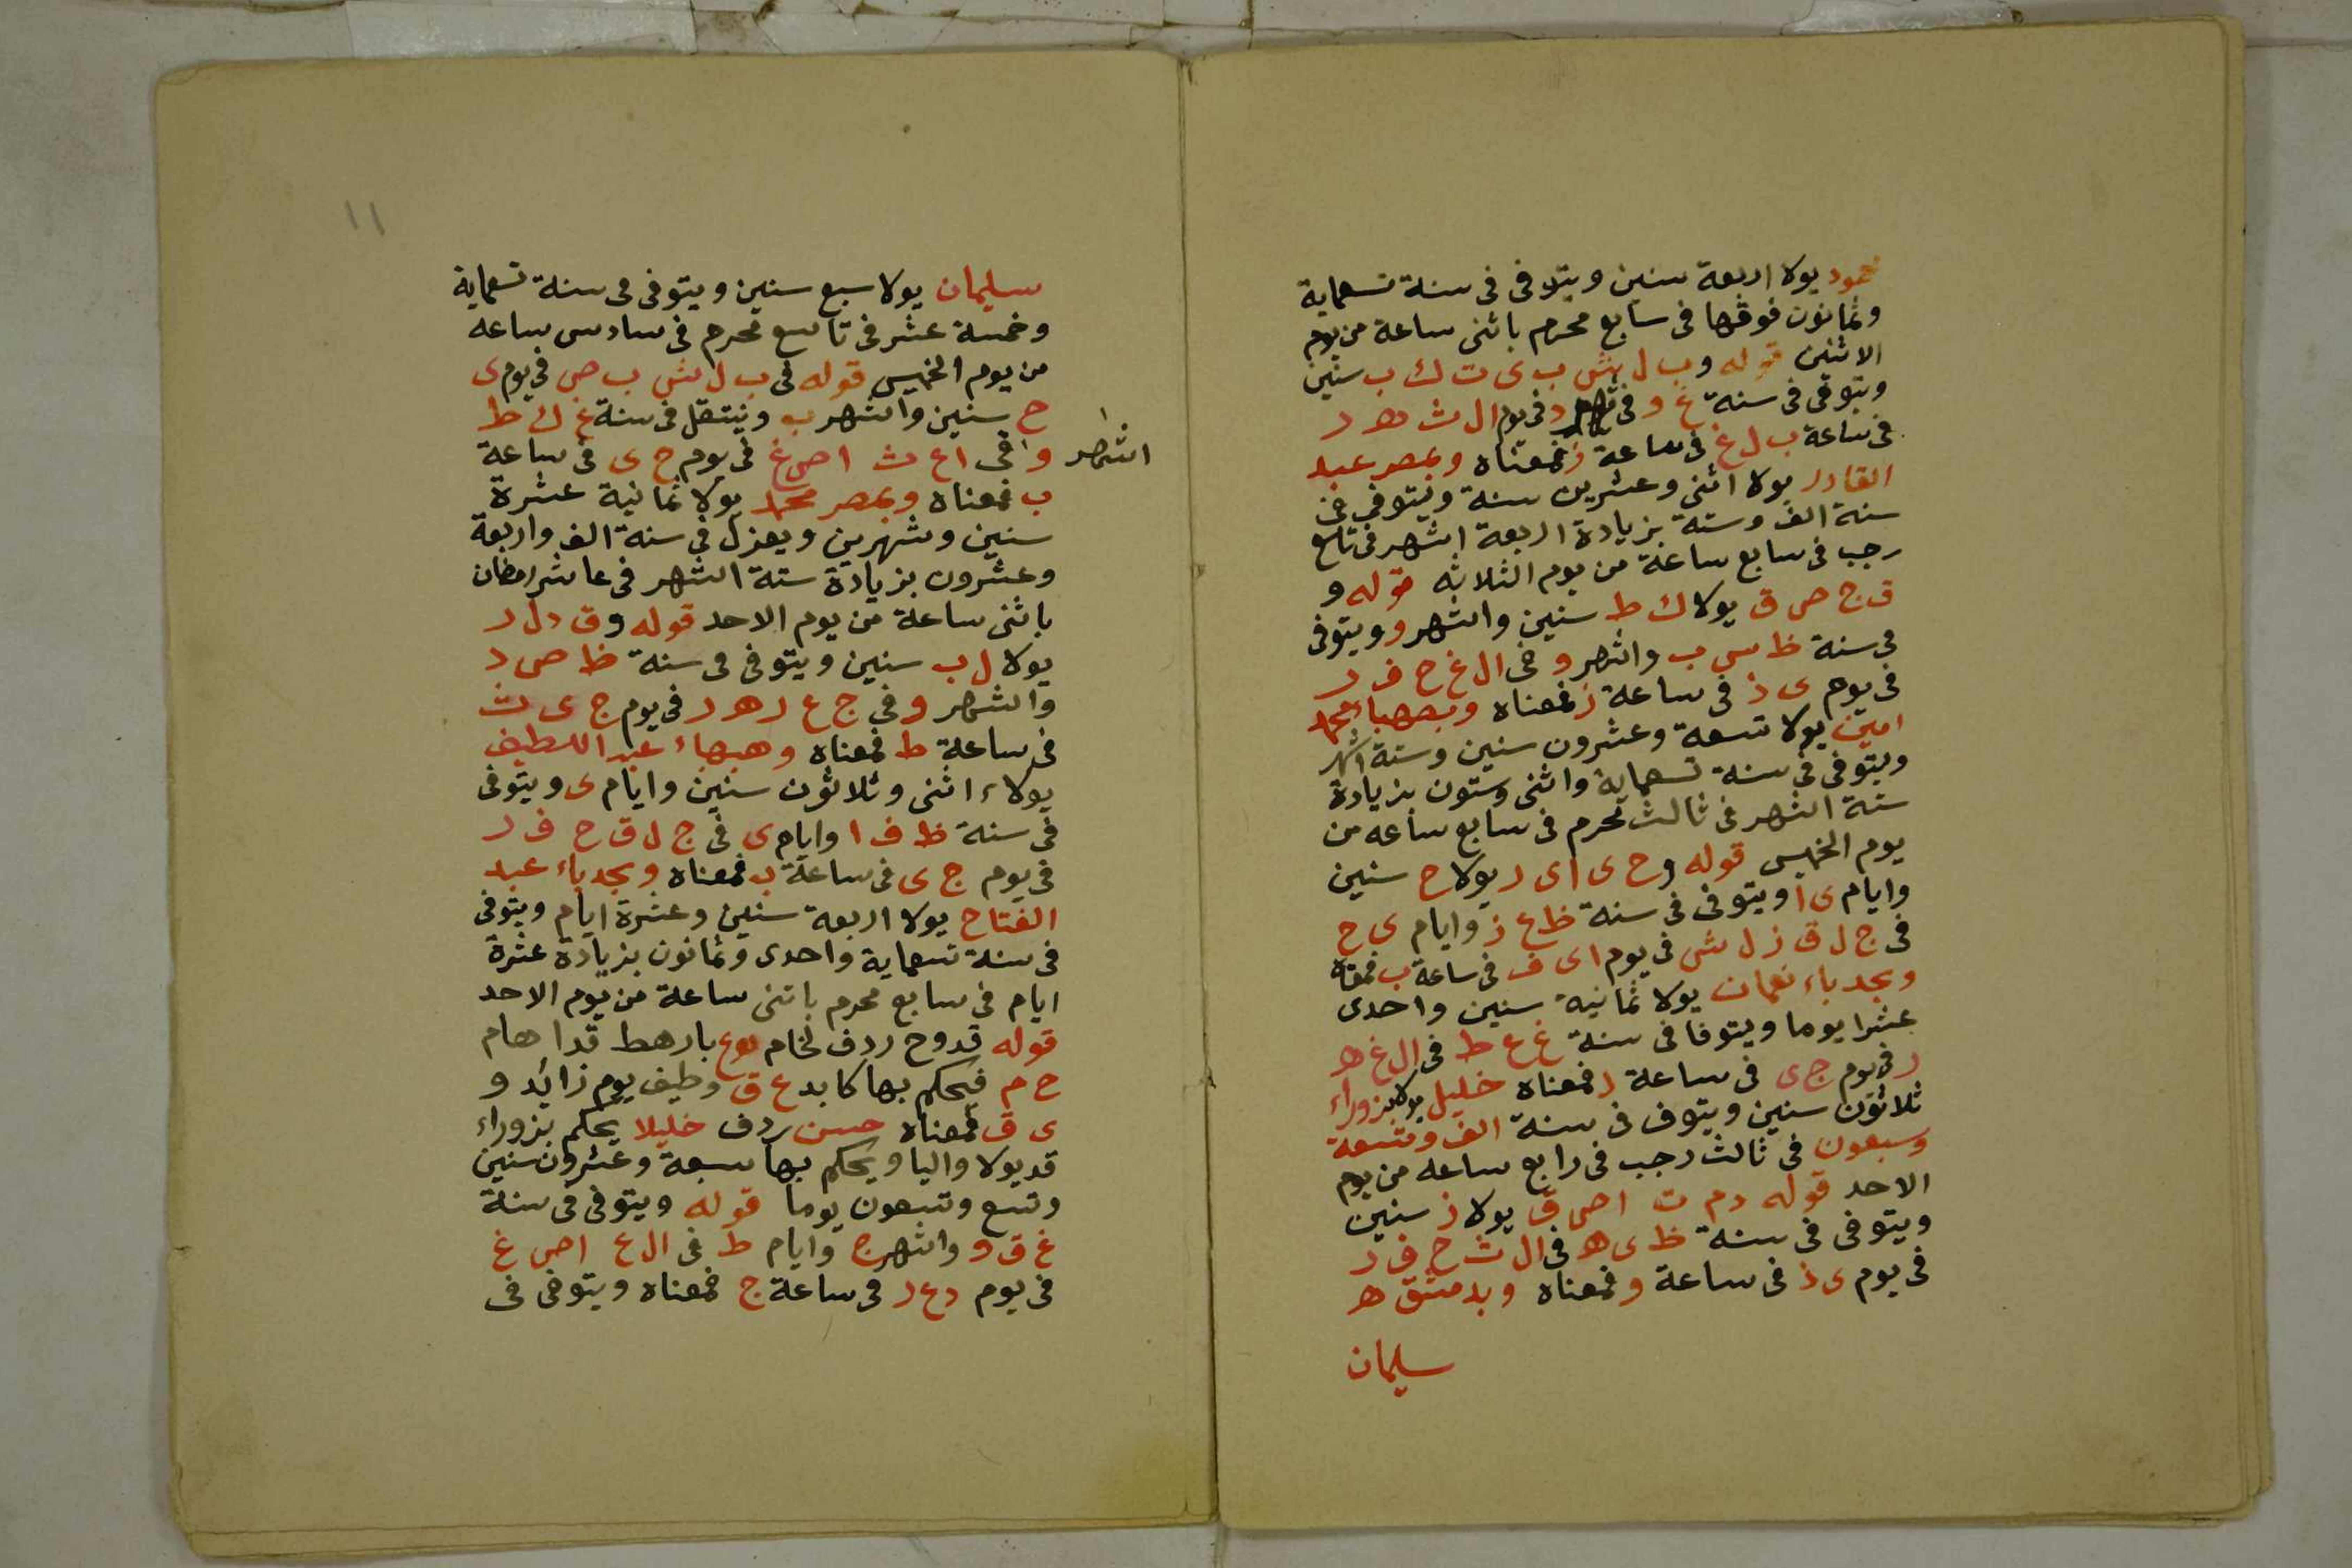 محمود يولا اربعة سنين ويتوفى فى سنة تسعماية
وثمانون فوقها فى سابع محرم باثنى ساعة من يوم
الاثنين قوله و ب ل ش ب ى ت ك ب سنين
ويتوفى فى سنة غ و فى شهر د فى يوم ال ث ه د ر
فى ساعة ب ل غ فى ساعة ز فمعناه وبمصر عبد
القادر يولا اثنى وعشرين سنة ويتوفى فى
سنة الف وستة بزيادة اربعة اشهر فى تاسع
رجب فى سابع ساعة من يوم الثلاثه قوله و
ق ج ص ق يولا ك ط سنين واشهر و ويتوفى
فى سنة ظ س ب واشهر و فى ال غ ح ف ر
فى يوم ى ذ فى ساعة ز فمعناه وبصهباء محمد
امين يولا تسعة وعشرون سنين وستة اشهر
ويتوفى فى سنة تسعماية واثنى وستون بزيادة
ستة اشهر فى ثالث محرم فى سابع ساعه من
يوم الخميس قوله و ح ى ا ى ر يولا ح سنين
وايام ى ا ويتوفى فى سنة ظ ع ز وايام ى ح
فى ج ل ق ز ل ش فى يوم ا ى ف فى ساعة ب فمعناه
وبجدباء نعمان يولا ثمانية سنين واحدى
عشرا يوما ويتوفا فى سنة غ ع ط فى ال غ ه
ر فى يوم ج ى فى ساعة د فمعناه خليل يولا بزوراء
ثلاثون سنين ويتوف فى سنة الف وتسعة
وسبعون فى ثالث رجب فى رابع ساعه من يوم
الاحد قوله د م ت ا ص ق يولا ز سنين
ويتوفى فى سنة ظ ى ه فى ال ث ح ف ر
فى يوم ى ذ فى ساعة و فمعناه وبدمشق ه
سليمان
١١
سليمان يولا سبع سنين ويتوفى فى سنة تسعماية
وخمسة عشر فى تاسع محرم فى سادس ساعه
من يوم الخميس قوله فى ب ل ش ب ص فى يوم ى
ح سنين واشهر ب وينتقل فى سنة غ ك ط
اشهر و فى ا ع ث ا ص غ فى يوم ج ى فى ساعة
ب فمعناه وبمصر محمد يولا ثمانية عشرة
سنين وشهرين ويعزل فى سنة الف واربعة
وعشرون بزيادة ستة اشهر فى عاشر رمضان
باثنى ساعة من يوم الاحد قوله و ق د ل ر
يولا ل ب سنين ويتوفى فى سنة ظ ص د
واشهر و فى ج ع ر ه ر فى يوم ج ى ث
فى ساعة ط فمعناه وهبهاء عبد اللطيف
يولاء اثنى وثلاثون سنين وايام ى ويتوفى
فى سنة ظ ف ا وايام ى فى ج ل ق ح ف ر
فى يوم ج ى فى ساعة ب فمعناه وبجدباء عبد
الفتاح يولا اربعة سنين وعشرة ايام ويتوفى
فى سنة تسعماية واحدى وثمانون بزيادة عشرة
ايام فى سابع محرم باثنى ساعة من يوم الاحد
قوله قدوح ردف لخام بارهط قدا هام
ح م فيحكم بها كا بد ع ق وطيف يوم زائد و
ى ق فمعناه حسن ردف خليلا يحكم بزوراء
قد يولا واليا ويحكم بها سبعة وعشرون سنين
وتسع وتسعون يوما قوله ويتوفى فى سنة
غ ق و واشهر ج وايام ط فى ال ع ا ص غ
فى يوم د ع ر فى ساعة ج فمعناه ويتوفى فى